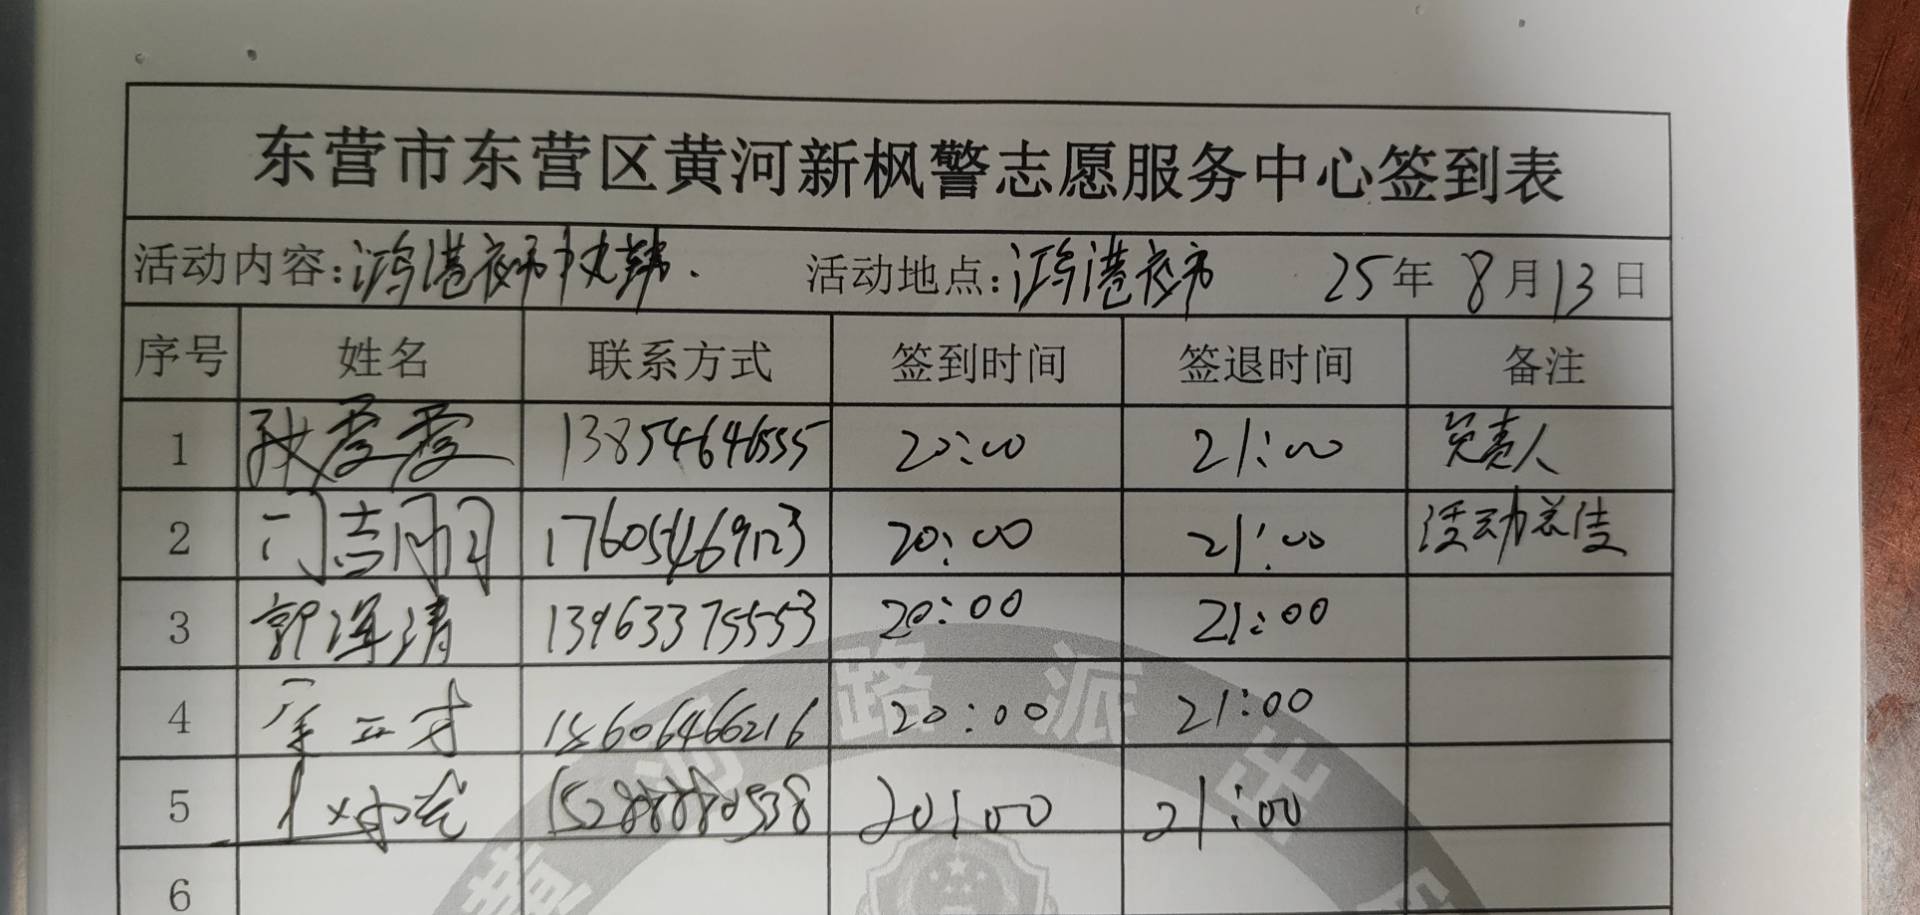 东营市东营区黄河新枫警志愿服务中心签到表
活动内容：鸿港夜市 活动地点：鸿港夜市 25年8月13日
序号 姓名 联系方式 签到时间 签退时间 备注
1 霞霞 13854646555 20:00 21:00 负责人
2 门志刚 17605469123 20:00 21:00 活动总结
3 郭洋清 13963375553 20:00 21:00
4 20:00 21:00
5 20:00 21:00
6
黄河路派出